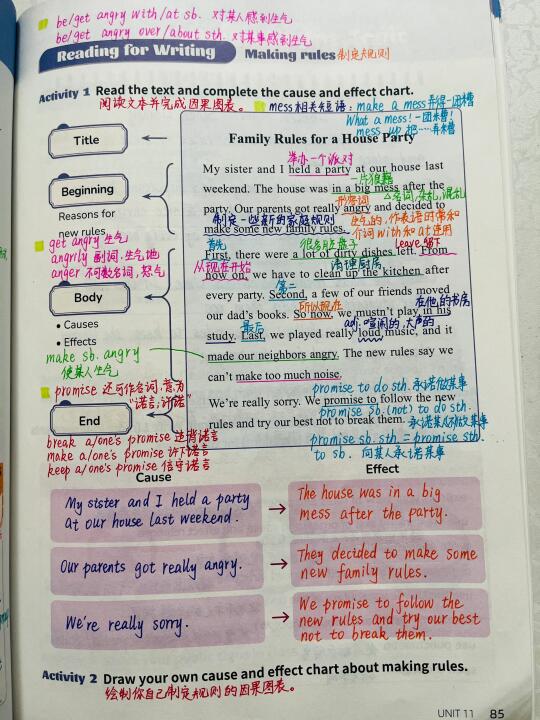 be/get angry with/at sb. 对某人感到生气
be/get angry over/about sth. 对某事感到生气
Reading for Writing Making rules 制定规则
Activity 1 Read the text and complete the cause and effect chart.
阅读文本并完成因果图表。 mess相关短语: make a mess 弄得一团糟
What a mess! 一团糟!
mess up 把……弄糟
Title
Family Rules for a House Party
举办一个派对
My sister and I held a party at our house last
一片狼藉
Beginning
weekend. The house was in a big mess after the
形容词 名词, 杂乱, 混乱
party. Our parents got really angry and decided to
Reasons for
new rules
制定一些新的家庭规则 生气的, 作表语时常和
make some new family rules. 介词with和at连用
get angry 生气
angrily 副词, 生气地
anger 不可数名词, 怒气
首先 很多脏盘子 leave 留下
First, there were a lot of dirty dishes left. From
从现在开始 清理厨房
now on, we have to clean up the kitchen after
Body
第二
every party. Second, a few of our friends moved
所以现在 在他的书房
our dad's books. So now, we mustn't play in his
• Causes
• Effects
最后 adj. 喧闹的, 大声的
study. Last, we played really loud music, and it
make sb. angry
使某人生气
made our neighbors angry. The new rules say we
can't make too much noise.
promise 还可作名词, 意为
"诺言; 许诺"
promise to do sth. 承诺做某事
We're really sorry. We promise to follow the new
End
promise sb. (not) to do sth.
rules and try our best not to break them. 承诺某人(不)做某事
break a/one's promise 违背诺言
make a/one's promise 许下诺言
keep a/one's promise 信守诺言
promise sb. sth. = promise sth.
to sb. 向某人承诺某事
Cause Effect
My sister and I held a party
at our house last weekend.
The house was in a big
mess after the party.
Our parents got really angry.
They decided to make some
new family rules.
We're really sorry.
We promise to follow the
new rules and try our best
not to break them.
Activity 2 Draw your own cause and effect chart about making rules.
绘制你自己制定规则的因果图表。
UNIT 11 85